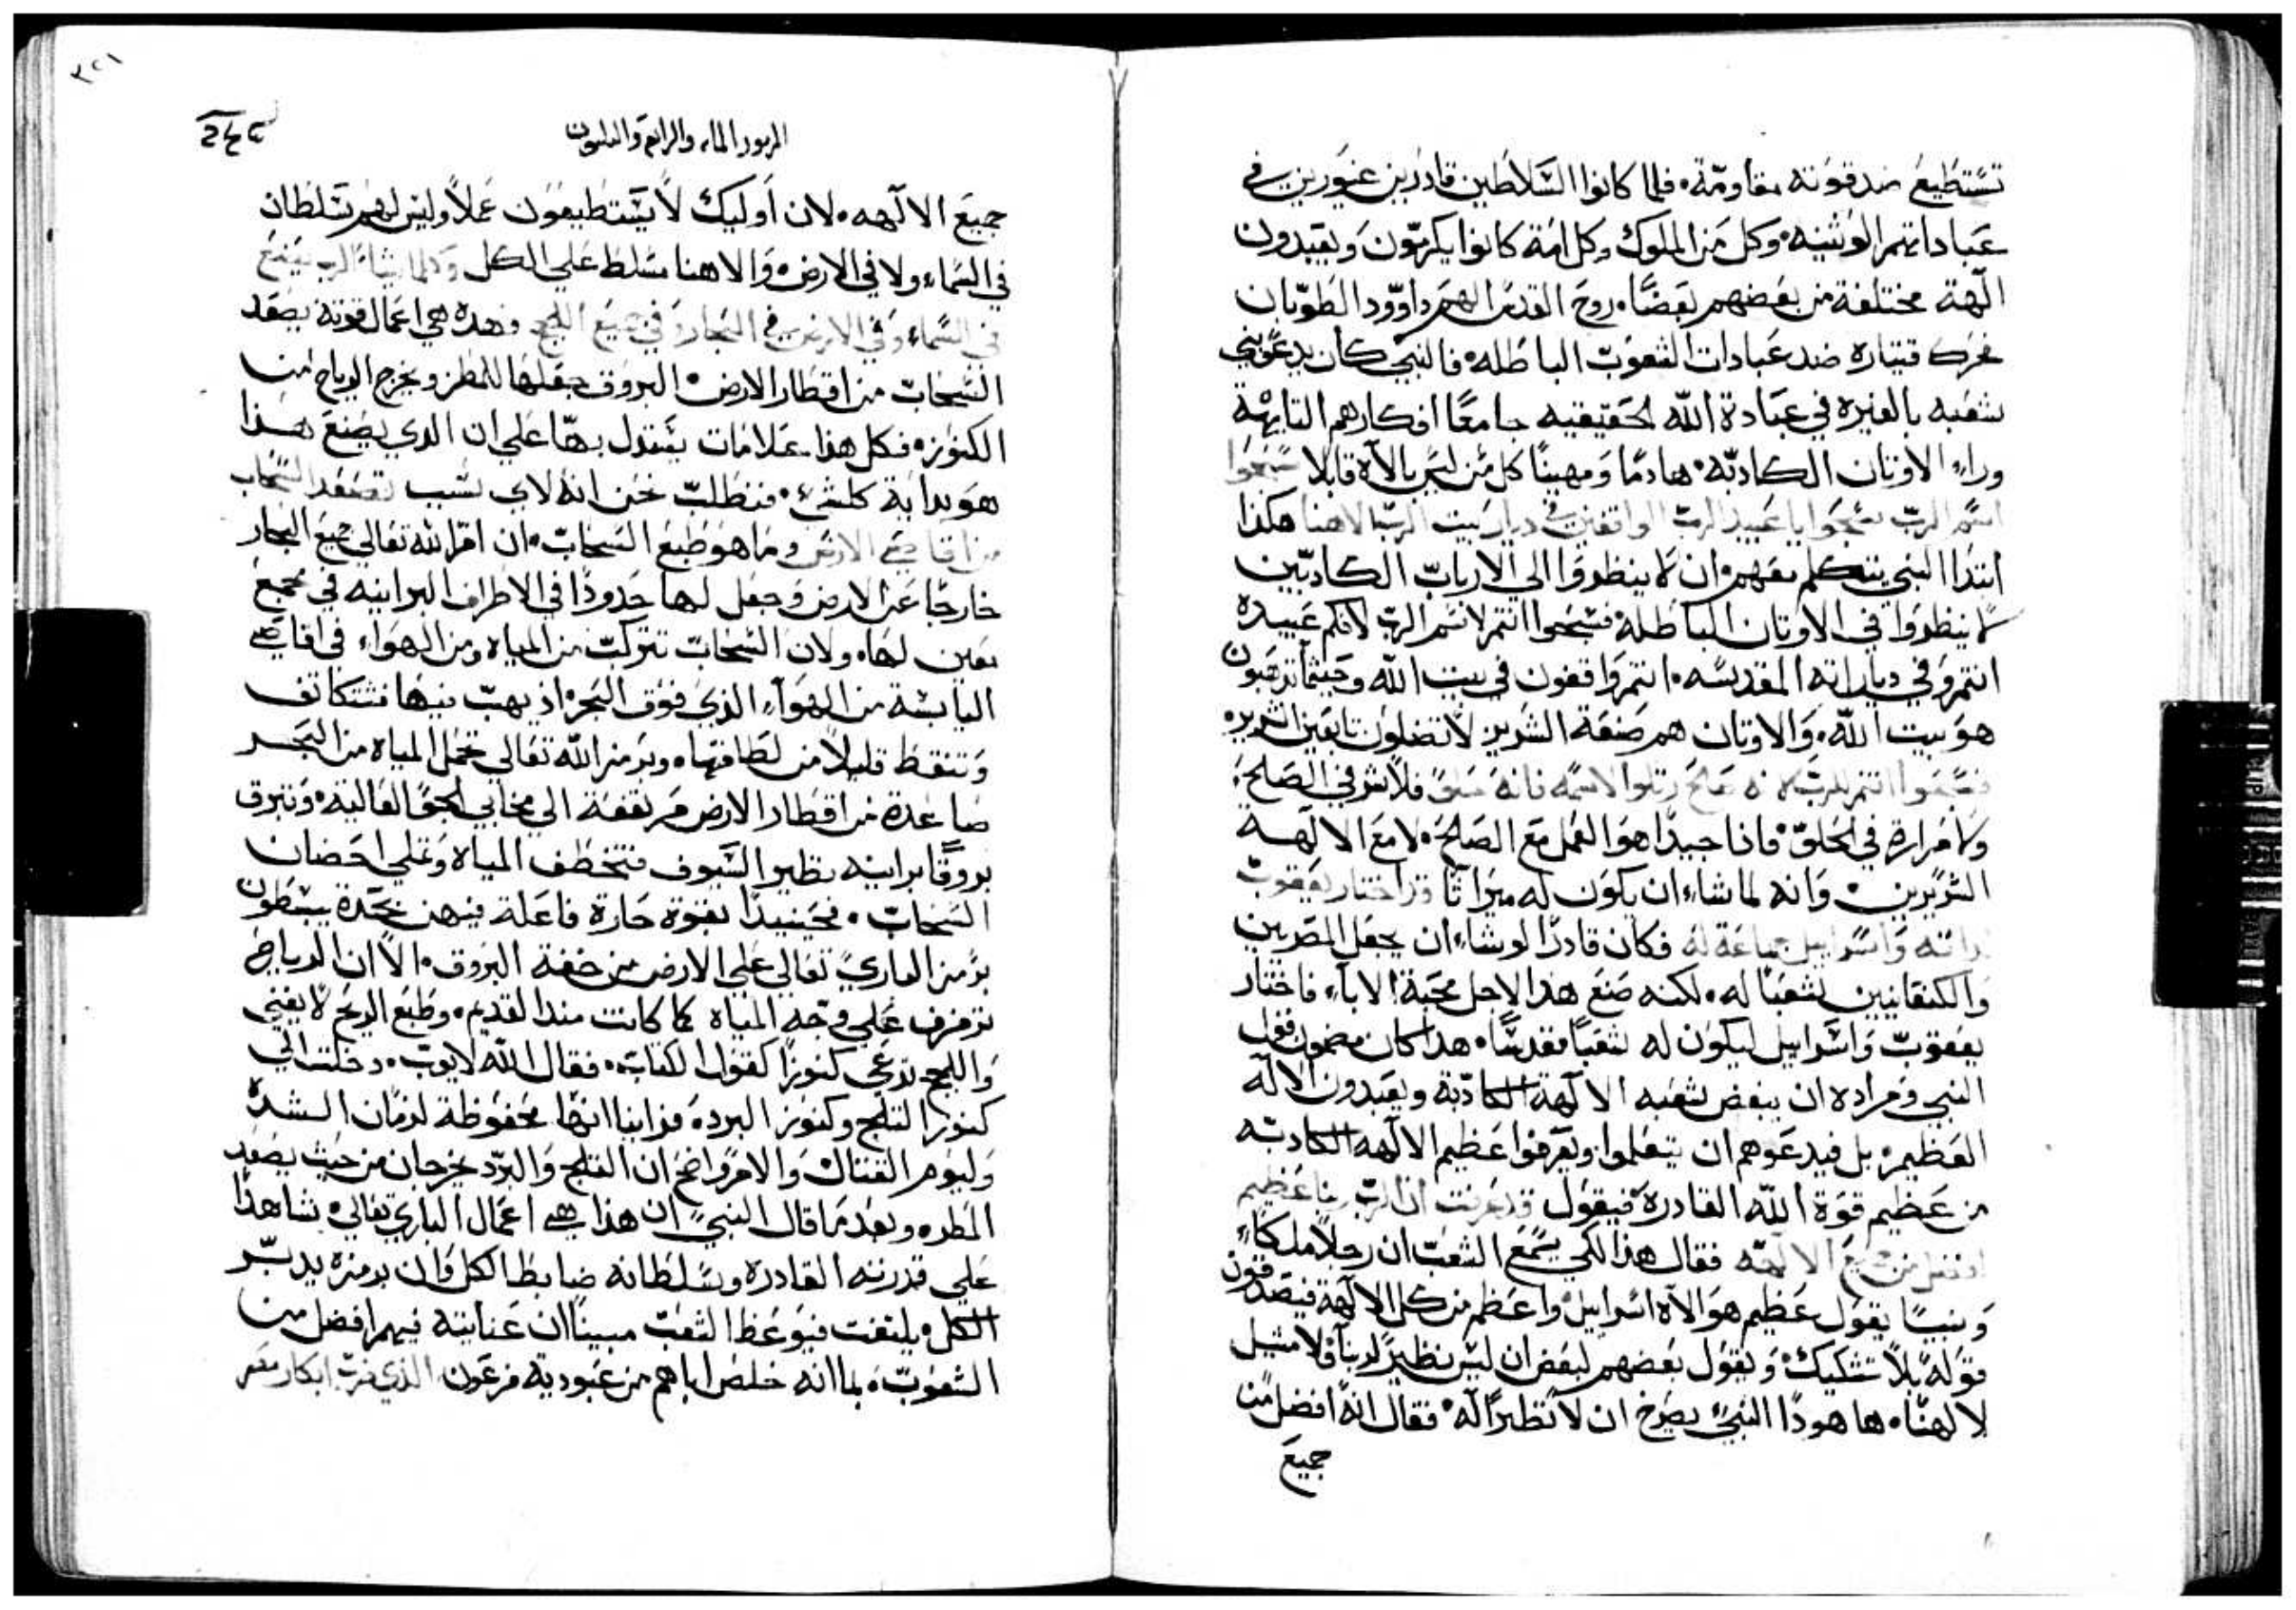 تستطيع ضد قوته مقاومة. فلما كانوا السلاطين قادرين غيورين في
عباداتهم الوثنيه. وكل من الملوك وكل امة كانوا يكرمون ويعبدون
الهة مختلفة من بعضهم بعضًا. روح القدس الهم داوود الطوبان
فحرك قيتاره ضد عبادات الشعوب الباطله. فالنبي كان يدعي بني
شعبه بالغيره في عبادة الله الحقيقيه جامعًا افكارهم التايهة
وراء الاوتان الكادبه. هادمًا ومهينًا كل من ليس بالاه قايلا سبحوا
اسم الرب سبحوا يا عبيد الرب الواقفين في ديار بيت الرب الاهنا هكذا
ابتدا النبي يتكلم معهم ان لا ينظروا الي الارباب الكادبين
لا ينظروا في الاوتان الباطلة فسبحوا انتم لاسم الرب لانكم عبيده
انتم وفي دياراته المقدسه. انتم واقفون في بيت الله وحيثما تدهبون
هو بيت الله. والاوتان هم صنعة الشرير لا تضلون تابعين الشريره
فسبحوا انتم للرب لانه صالح رتلوا لاسمه فانه حلو فلا شر في الصالح
ولا مرارة في الحلو. فاذا جيدًا هو العمل مع الصالح. لا مع الالهة
الشريرين. وانه لما شاء ان يكون له ميراثًا قد اختار يعقوب
لذاته واسراييل جماعة له فكان قادرًا لو شاء ان يجعل المصريين
والكنعانيين شعبًا له. لكنه صنع هذا لاجل محبة الاباء. فاختار
يعقوب واسراييل ليكون له شعبًا مقدسًا. هدا كان مضمون قول
النبي ومراده ان يبغض شعبه الالهة الكادبة ويعبدون الاله
العظيم. بل فيدعوهم ان يتعلموا ويعرفوا عظيم الالهه الكادبه
من عظيم قوة الله القادرة فيقول قد عرفت ان الرب ربنا عظيم
افضل من جميع الالهه فقال هذا لكي يسمع الشعب ان رجلاً ملكًا
ونبيًا يقول عظيم هو الاه اسراييل واعظم من كل الالهة فيصدقون
قوله بلا تشكيك. ويقول بعضهم لبعض ان ليس نظيرًا لربنا ولا مثيل
لالهنا. ها هودا النبي يصرخ ان لا نظيرًا له. فقال انه افضل من
جميع
المزمور المايه والرابع والثلثون
٣٢١
جميع الالهه. لان اوليك لا يستطيعون عملاً وليس لهم سلطان
في السماء ولا في الارض. والاهنا مسلط علي الكل وكلما يشاء الرب يصنع
في السماء وفي الارض في البحار وفي جميع اللجج وهده هي اعمال قوته يصعد
السحاب من اقطار الارض. البروق جعلها للمطر ويخرج الرياح من
الكنوز. فكل هدا علامات يستدل بها علي ان الدي يصنع هذا
هو بداية كلشي. فنطلب نحن انه لاي سبب تصعد السحاب
من اقاصي الارض وما هو طبع السحاب. ان امر الله تعالي جميع البحار
خارجًا عن الارض وجعل لها حدودًا في الاطراف البرانيه في مجمع
معين لها. ولان السحاب تتركب من المياه ومن الهواء في اقاصي
اليابسة من الهواء الذي فوق البحر. اذ يهب فيها فتتكاتف
وتنقط قليلاً من لطافتها. وبرمز الله تعالي تحمل المياه من البحر
صاعدة من اقطار الارض مرتفعة الي مخابي الجو العاليه. وتبرق
بروقًا برانيه نظير السيوف فتخطف المياه وتملي احضان
السحاب. فحينيدًا بقوة حارة فاعلة فيهن بحدة يسطون
برمز الباري تعالي علي الارض من خفة البروق. الا ان الرياح
ترفرف علي وجه المياه كما كانت مند القديم. وطبع الريح لا يفني
واللجج تدعي كنوزًا كقول الكتاب. فقال الله لايوب. دخلت الي
كنوز التلج وكنوز البرد. فراينا انها محفوظة لزمان الشدة
وليوم القتال والامر واضح ان التلج والبرد يخرجان من حيث يصعد
المطر. وبعد ما قال النبي ان هذا هي اعمال الباري تعالي. شاهدًا
علي قدرته القادرة وسلطانه ضابط الكل وان برمزه يدبر
الكل. يلتفت فيوعظ الشعب مبينًا ان عنايته فيهم افضل من
الشعوب. بما انه خلص اباهم من عبودية فرعون الذي ضرب ابكار مصر